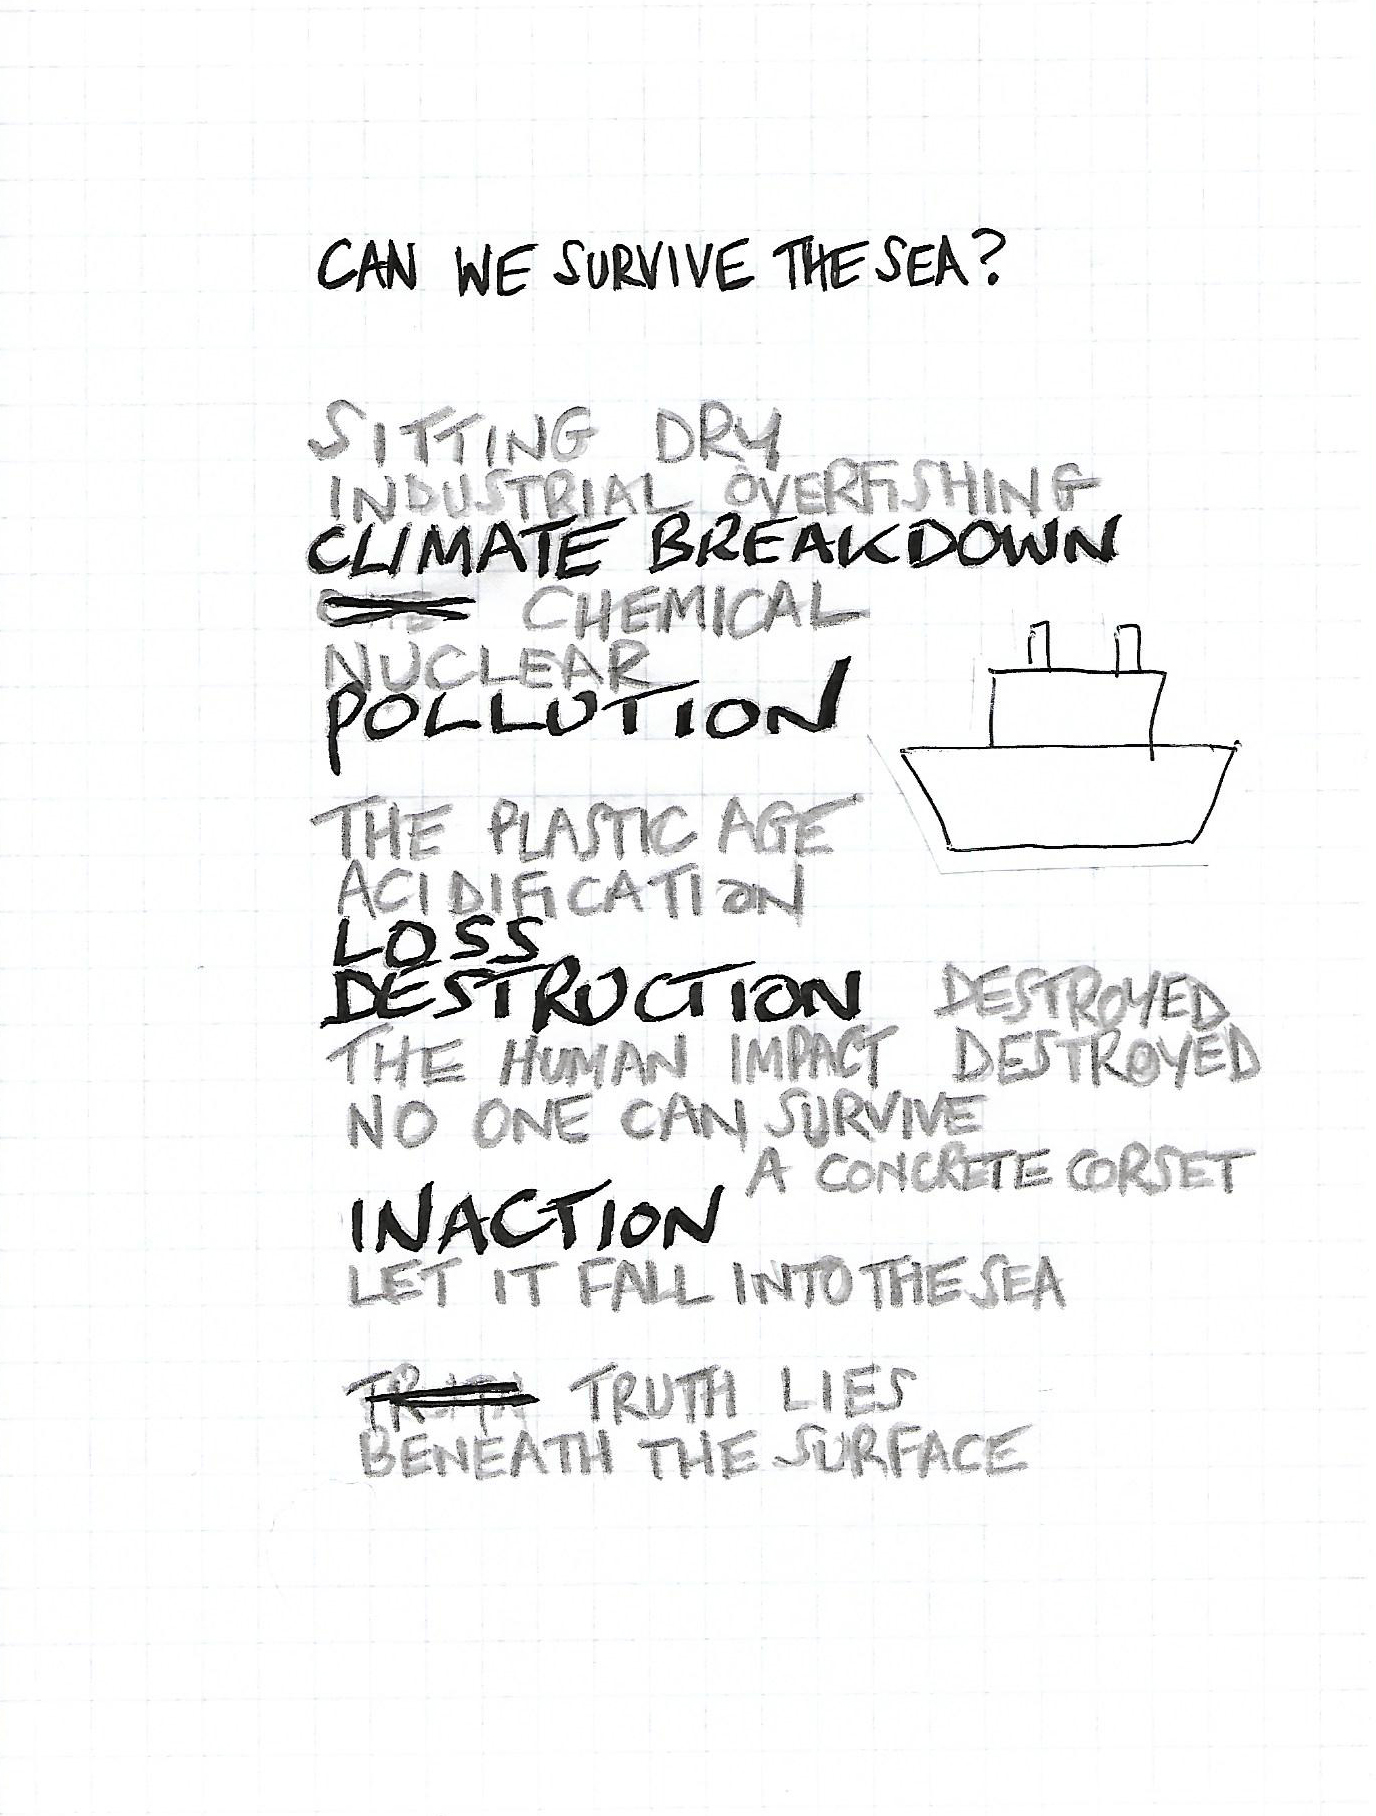 CAN WE SURVIVE THE SEA?
SITTING DRY
INDUSTRIAL OVERFISHING
CLIMATE BREAKDOWN
CHEMICAL
NUCLEAR
POLLUTION
THE PLASTIC AGE
ACIDIFICATION
LOSS
DESTRUCTION DESTROYED
THE HUMAN IMPACT DESTROYED
NO ONE CAN SURVIVE
A CONCRETE CORSET
INACTION
LET IT FALL INTO THE SEA
TRUTH LIES
BENEATH THE SURFACE